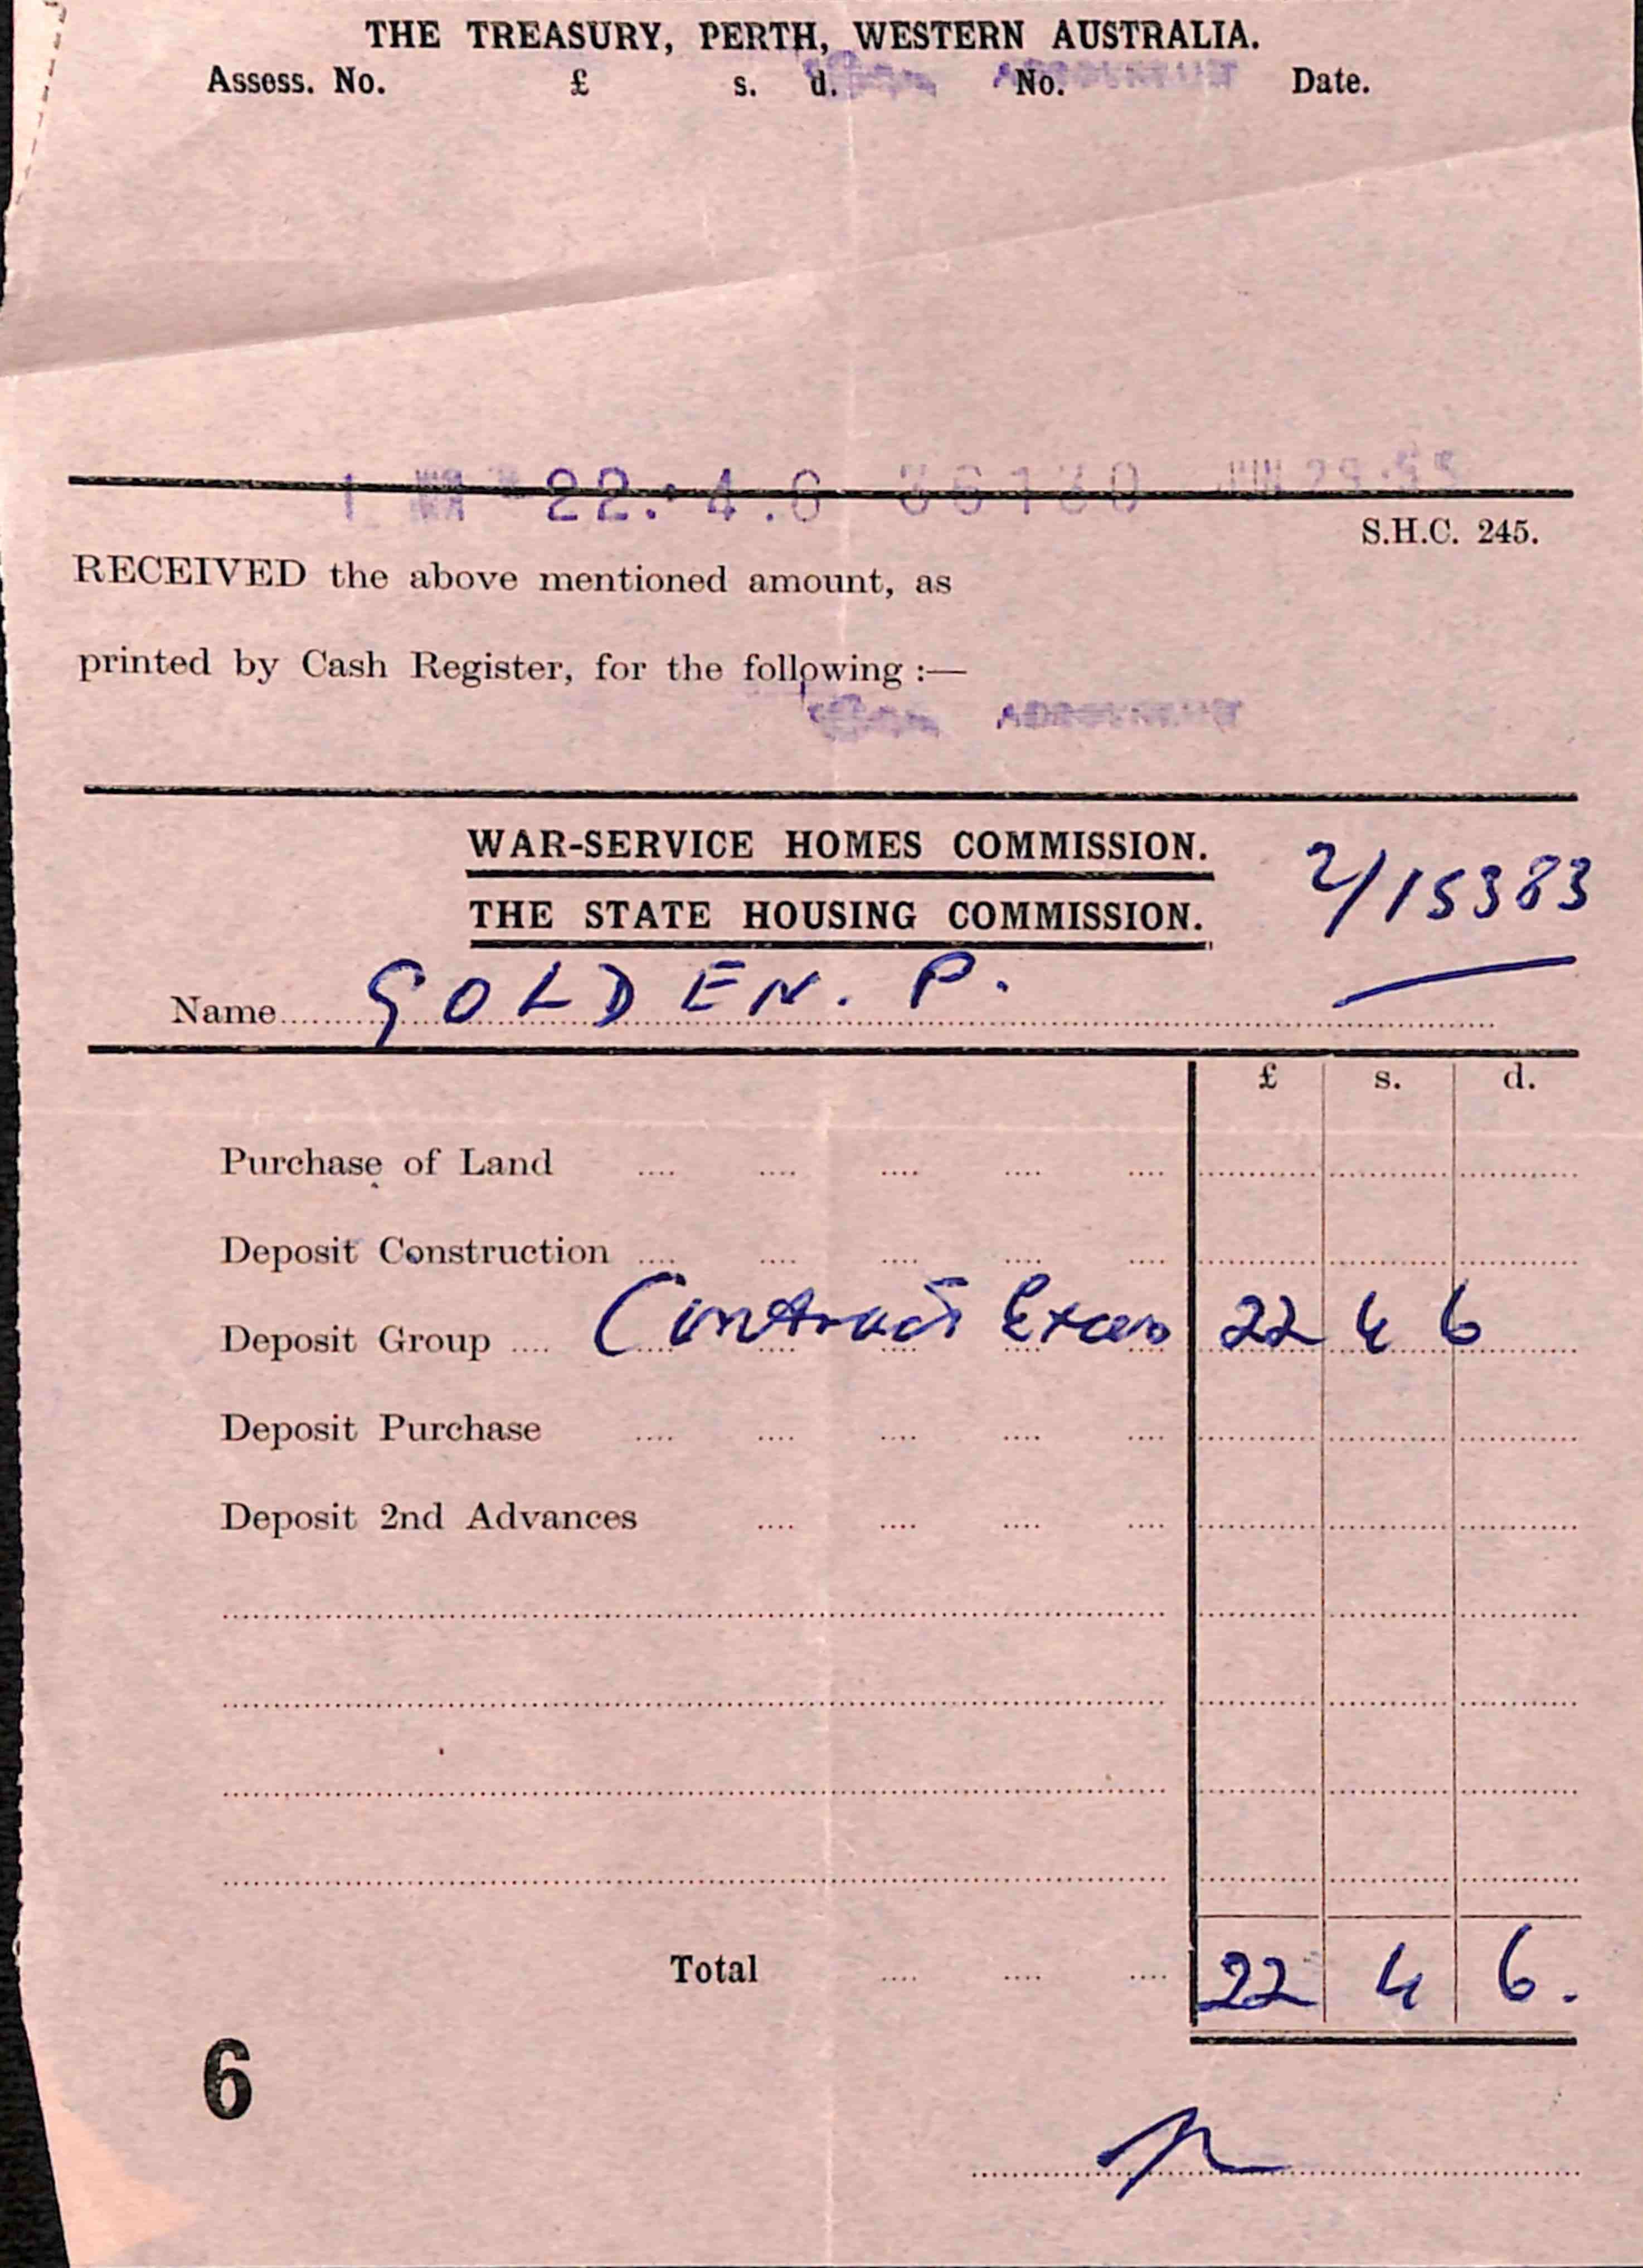 THE TREASURY, PERTH, WESTERN AUSTRALIA.
Assess. No. £ s. d. No. Date.
1 22. 4.6 JUN 29.55
S.H.C. 245.
RECEIVED the above mentioned amount, as
printed by Cash Register, for the following :—
WAR-SERVICE HOMES COMMISSION.
2/15383
THE STATE HOUSING COMMISSION.
Name GOLDEN. P.
£ s. d.
Purchase of Land
Deposit Construction
Deposit Group Contract Excess 22 4 6
Deposit Purchase
Deposit 2nd Advances
Total 22 4 6.
6